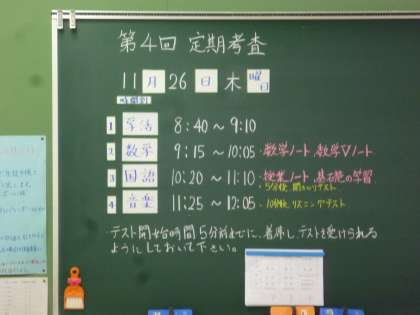 第4回 定期考査
11月26日 木曜日
時間割
1 学活 8:40〜9:10
2 数学 9:15〜10:05 ・数学ノート、数学Vノート
3 国語 10:20〜11:10 ・授業ノート、基石兜の学習
・5分後、聞きとりテスト
4 音楽 11:25〜12:05 ・10分後、リスニングテスト
・テスト開始時間5分前までに、着席し、テストを受けられる
ようにしておいて下さい。